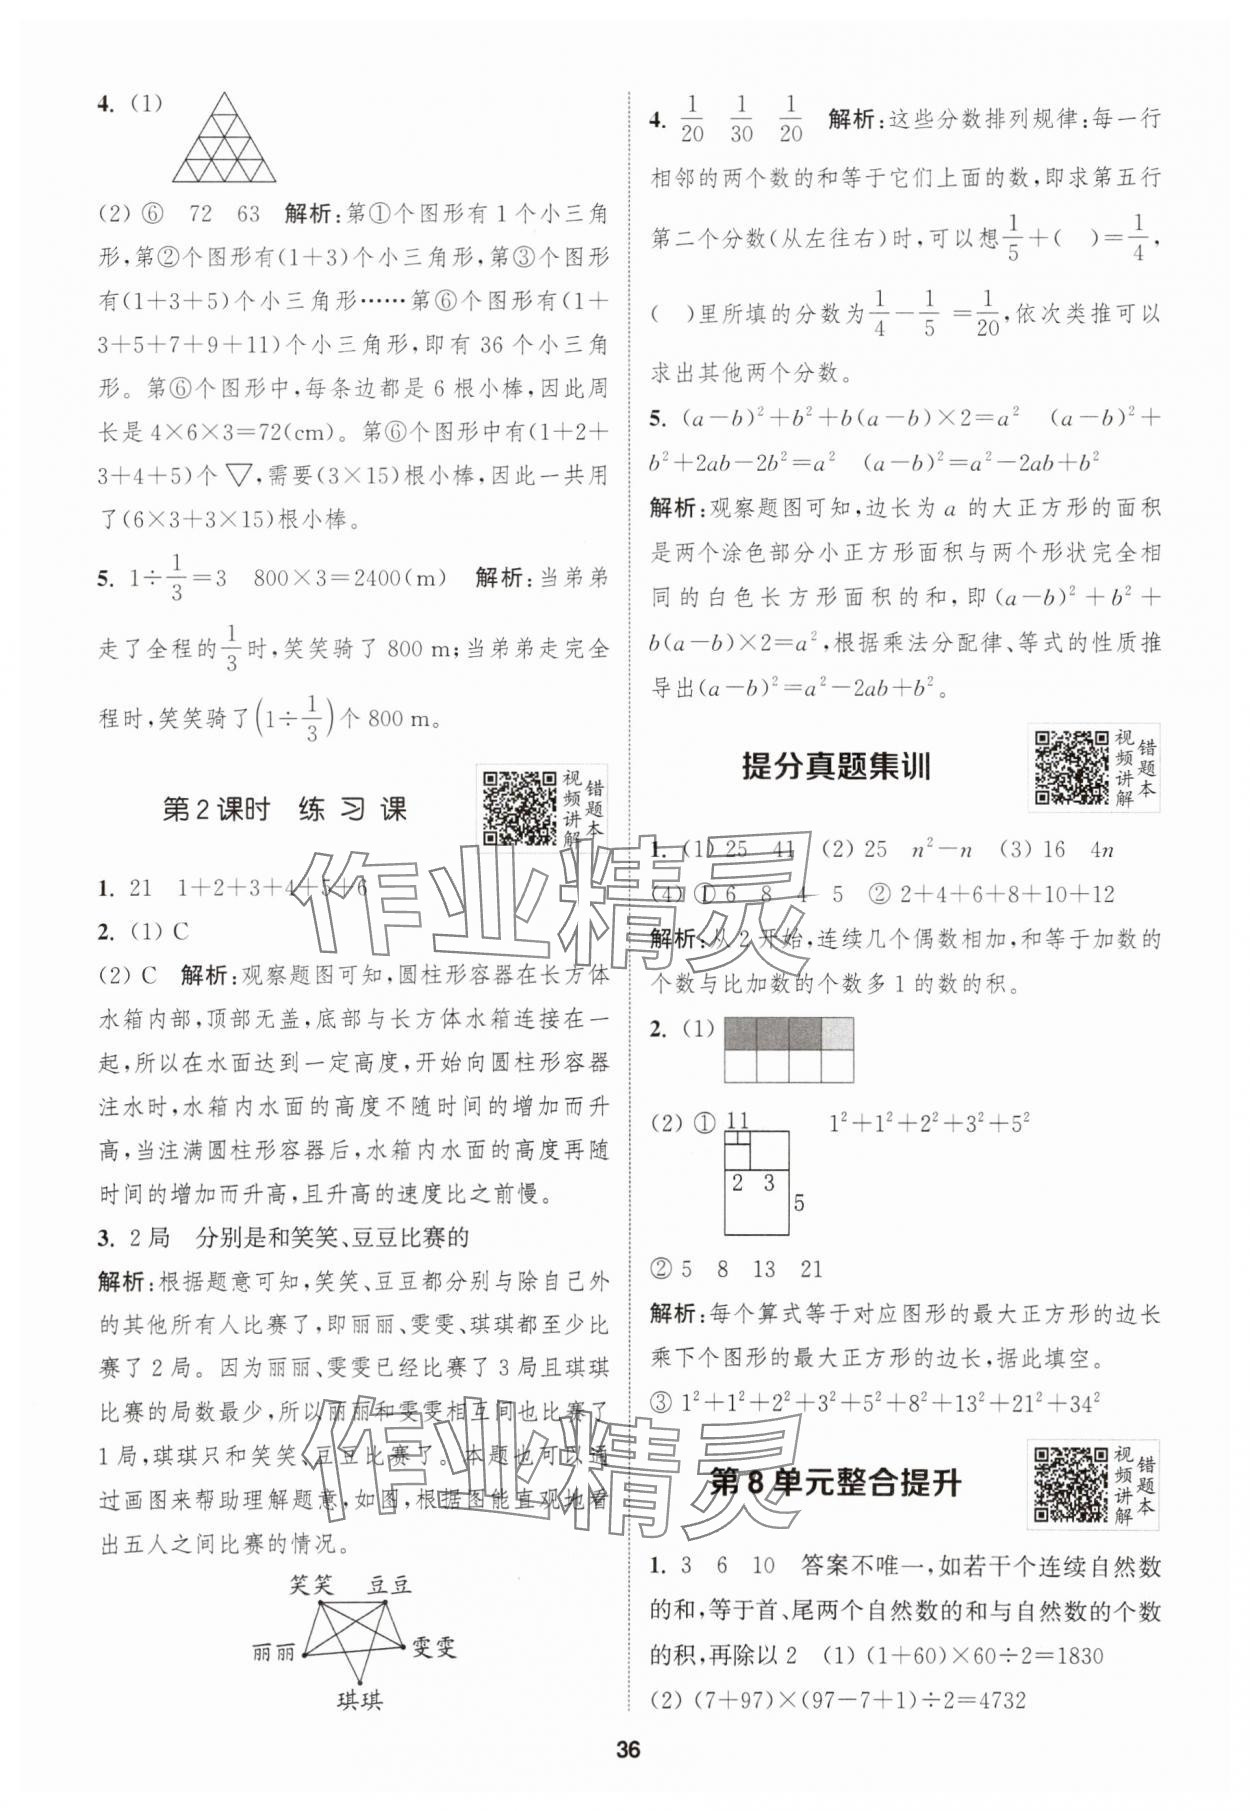 4. (1)
(2) ⑥ 72 63 解析:第①个图形有1个小三角
形,第②个图形有(1+3)个小三角形,第③个图形
有(1+3+5)个小三角形……第⑥个图形有(1+
3+5+7+9+11)个小三角形,即有36个小三角
形。第⑥个图形中,每条边都是6根小棒,因此周
长是4×6×3=72(cm)。第⑥个图形中有(1+2+
3+4+5)个▽,需要(3×15)根小棒,因此一共用
了(6×3+3×15)根小棒。
5. 1÷1/3=3 800×3=2400(m) 解析:当弟弟
走了全程的1/3时,笑笑骑了800 m;当弟弟走完全
程时,笑笑骑了(1÷1/3)个800 m。
第2课时 练习课
视频讲解
错题本
1. 21 1+2+3+4+5+6
2. (1) C
(2) C 解析:观察题图可知,圆柱形容器在长方体
水箱内部,顶部无盖,底部与长方体水箱连接在一
起,所以在水面达到一定高度,开始向圆柱形容器
注水时,水箱内水面的高度不随时间的增加而升
高,当注满圆柱形容器后,水箱内水面的高度再随
时间的增加而升高,且升高的速度比之前慢。
3. 2局 分别是和笑笑、豆豆比赛的
解析:根据题意可知,笑笑、豆豆都分别与除自己外
的其他所有人比赛了,即丽丽、雯雯、琪琪都至少比
赛了2局。因为丽丽、雯雯已经比赛了3局且琪琪
比赛的局数最少,所以丽丽和雯雯相互间也比赛了
1局,琪琪只和笑笑、豆豆比赛了。本题也可以通
过画图来帮助理解题意,如图,根据图能直观地看
出五人之间比赛的情况。
笑笑 豆豆
丽丽 雯雯
琪琪
4. 1/20 1/30 1/20 解析:这些分数排列规律:每一行
相邻的两个数的和等于它们上面的数,即求第五行
第二个分数(从左往右)时,可以想1/5+( )=1/4,
( )里所填的分数为1/4-1/5=1/20,依次类推可以
求出其他两个分数。
5. (a-b)²+b²+b(a-b)×2=a² (a-b)²+
b²+2ab-2b²=a² (a-b)²=a²-2ab+b²
解析:观察题图可知,边长为a的大正方形的面积
是两个涂色部分小正方形面积与两个形状完全相
同的白色长方形面积的和,即(a-b)²+b²+
b(a-b)×2=a²,根据乘法分配律、等式的性质推
导出(a-b)²=a²-2ab+b²。
提分真题集训
视频讲解
错题本
1. (1) 25 41 (2) 25 n²-n (3) 16 4n
(4) ① 6 8 4 5 ② 2+4+6+8+10+12
解析:从2开始,连续几个偶数相加,和等于加数的
个数与比加数的个数多1的数的积。
2. (1)
(2) ① 11 1²+1²+2²+3²+5²
2 3
5
② 5 8 13 21
解析:每个算式等于对应图形的最大正方形的边长
乘下个图形的最大正方形的边长,据此填空。
③ 1²+1²+2²+3²+5²+8²+13²+21²+34²
第8单元整合提升
视频讲解
错题本
1. 3 6 10 答案不唯一,如若干个连续自然数
的和,等于首、尾两个自然数的和与自然数的个数
的积,再除以2 (1) (1+60)×60÷2=1830
(2) (7+97)×(97-7+1)÷2=4732
36
作业精灵
作业精灵